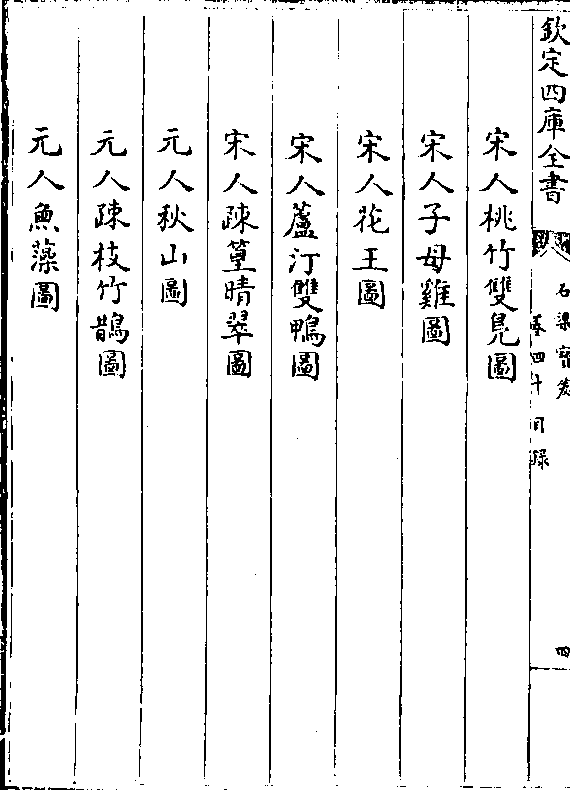 欽定四庫全書
石渠寶笈
卷四十目錄
四
宋人桃竹雙鳬圖
宋人子母雞圖
宋人花王圖
宋人蘆汀雙鴨圖
宋人疎篁晴翠圖
元人秋山圖
元人疎枝竹鵲圖
元人魚藻圖